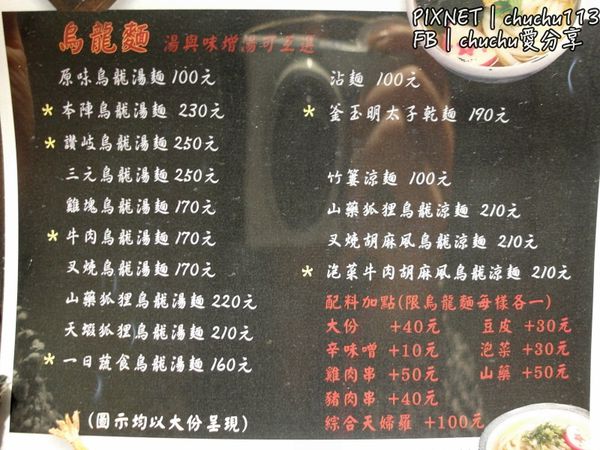 PIXNET | chuchu113
FB | chuchu愛分享
烏龍麵 湯與味增湯可互選
原味烏龍湯麵 100元
* 本陣烏龍湯麵 230元
* 讚岐烏龍湯麵 250元
三元烏龍湯麵 250元
雞塊烏龍湯麵 170元
* 牛肉烏龍湯麵 170元
叉燒烏龍湯麵 170元
山藥狐狸烏龍湯麵 220元
天蝦狐狸烏龍湯麵 210元
* 一日蔬食烏龍湯麵 160元
(圖示均以大份呈現)
沾麵 100元
* 釜玉明太子乾麵 190元
竹簍涼麵 100元
山藥狐狸烏龍涼麵 210元
叉燒胡麻風烏龍涼麵 210元
* 泡菜牛肉胡麻風烏龍涼麵 210元
配料加點(限烏龍麵每樣各一)
大份 +40元 豆皮 +30元
辛味噌 +10元 泡菜 +30元
雞肉串 +50元 山藥 +50元
豬肉串 +40元
綜合天婦羅 +100元